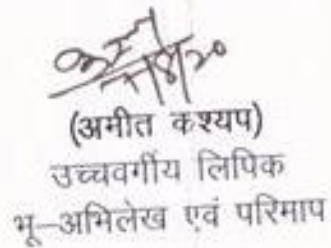 (अमीत कश्यप)
उच्चवर्गीय लिपिक
भू-अभिलेख एवं परिमाप